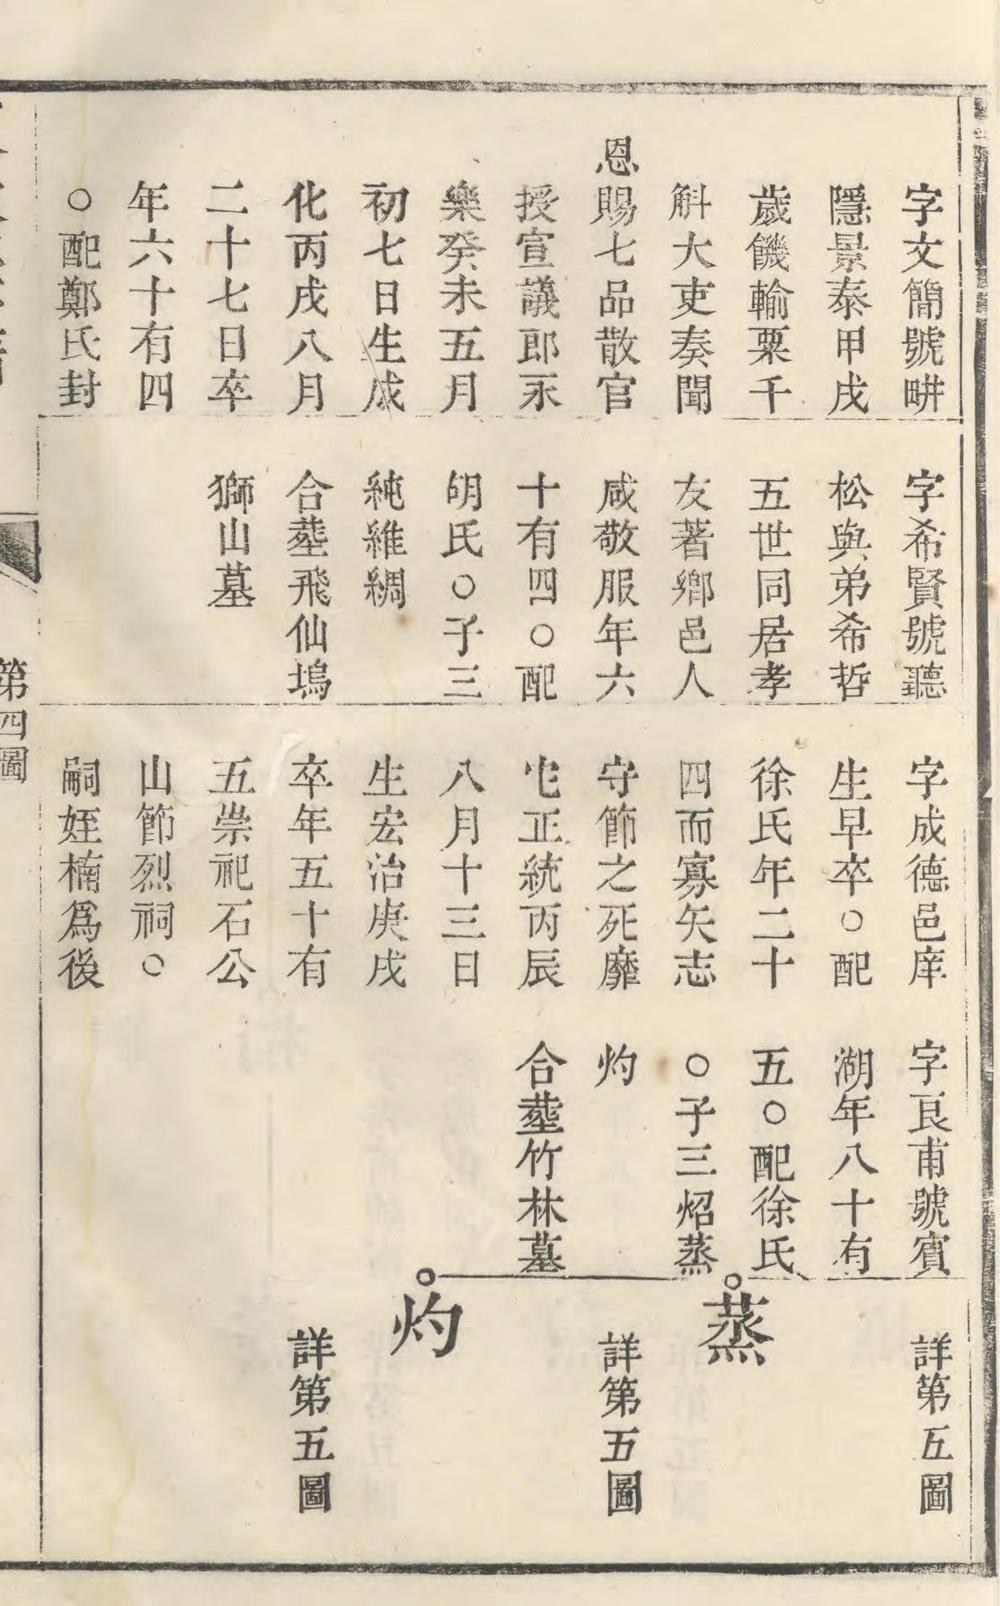 字文簡號畊
隱景泰甲戌
歲饑輸粟千
斛大吏奏聞
恩賜七品散官
授宣議郎永
樂癸未五月
初七日生成
化丙戌八月
二十七日卒
年六十有四
○配鄭氏封
字希賢號聽
松與弟希哲
五世同居孝
友著鄉邑人
咸敬服年六
十有四○配
胡氏○子三
純維綢
合塟飛仙塢
獅山墓
字成德邑庠
生早卒○配
徐氏年二十
四而寡矢志
守節之死靡
它正統丙辰
八月十三日
生宏治庚戌
卒年五十有
五崇祀石公
山節烈祠○
嗣姪楠爲後
字良甫號賓
湖年八十有
五○配徐氏
○子三炤蒸
灼
合塟竹林墓
詳第五圖
蒸
詳第五圖
灼
詳第五圖
第四圖